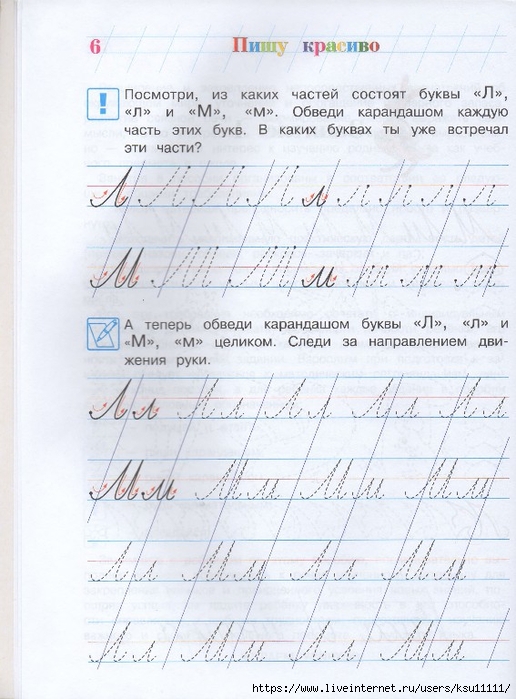 6 Пишу красиво
! Посмотри, из каких частей состоят буквы «Л»,
«л» и «М», «м». Обведи карандашом каждую
часть этих букв. В каких буквах ты уже встречал
эти части?
Л Л Л Л л л л л л
М М М м м м м
А теперь обведи карандашом буквы «Л», «л» и
«М», «м» целиком. Следи за направлением дви-
жения руки.
Лл Лл Лл Лл Лл
Мм Мм Мм Мм
Лл Мм Лл Мм
Лл Мм Лл Мм
https://www.liveinternet.ru/users/ksu11111/